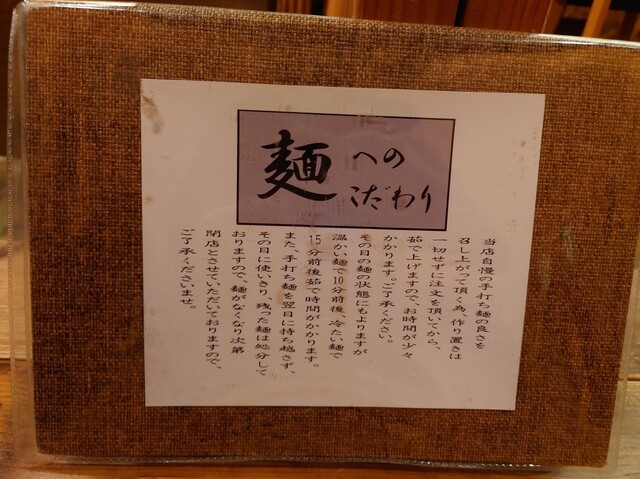 麺への
こだわり
当店自慢の手打ち麺の良さを
召し上がって頂く為、作り置きは
一切せずに注文を頂いてから、
茹で上げますので、お時間が少々
かかります。ご了承ください。
その日の麺の状態にもよりますが
温かい麺で10分前後、冷たい麺で
15分前後茹で時間がかかります。
また、手打ち麺を翌日に持ち越さず、
その日に使いきり、残った麺は処分して
おりますので、麺がなくなり次第
閉店とさせていただいておりますので、
ご了承くださいませ。